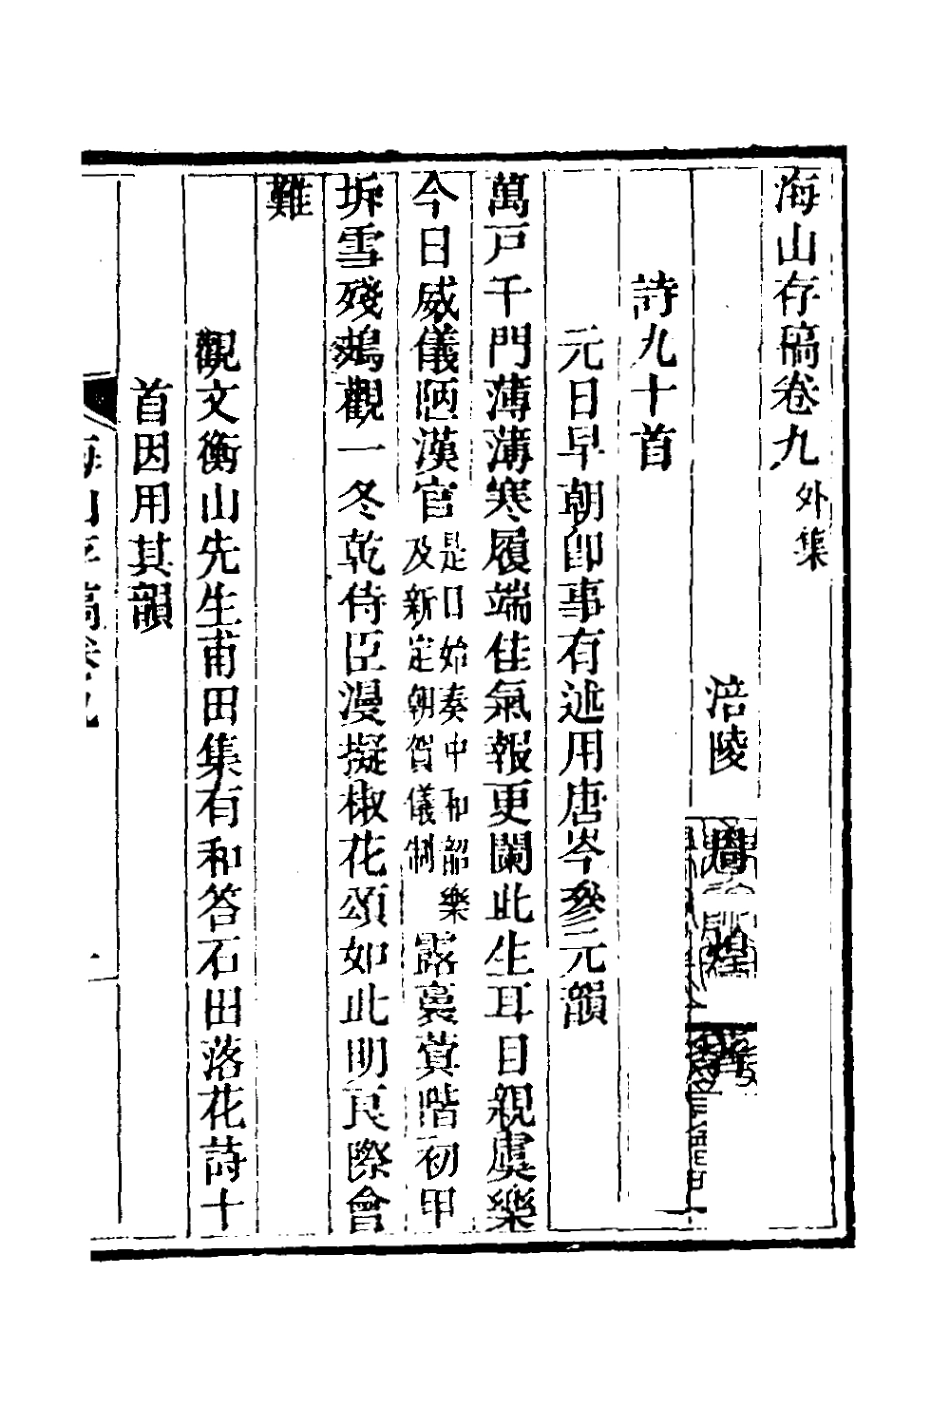 海山存稿卷九 外集
涪陵 周 煌
詩九十首
元日早朝卽事有述用唐岑參元韻
萬戸千門薄薄寒履端佳氣報更闌此生耳目親虞樂
今日威儀陋漢官 是日始奏中和韶樂 及新定朝賀儀制 露裛蓂階初甲
坼雪殘鳷觀一冬乾侍臣漫擬椒花頌如此明良際會
難
觀文衡山先生甫田集有和答石田落花詩十
首因用其韻
海山存稿卷九
一